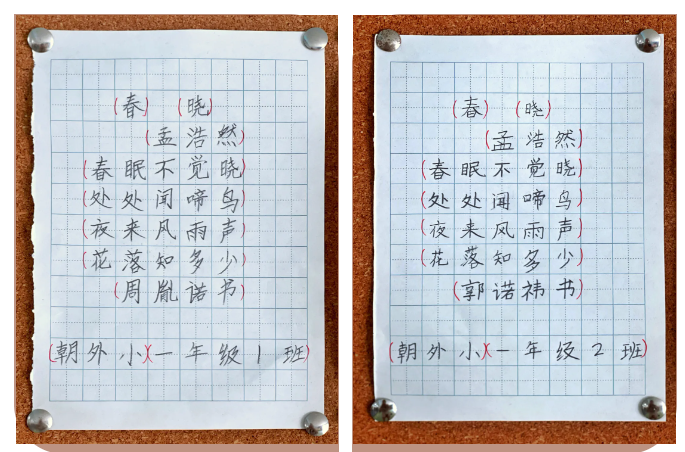 春 晓
孟浩然
春眠不觉晓
处处闻啼鸟
夜来风雨声
花落知多少
周胤诺书
朝外小一年级1班
春 晓
孟浩然
春眠不觉晓
处处闻啼鸟
夜来风雨声
花落知多少
郭诺祎书
朝外小一年级2班